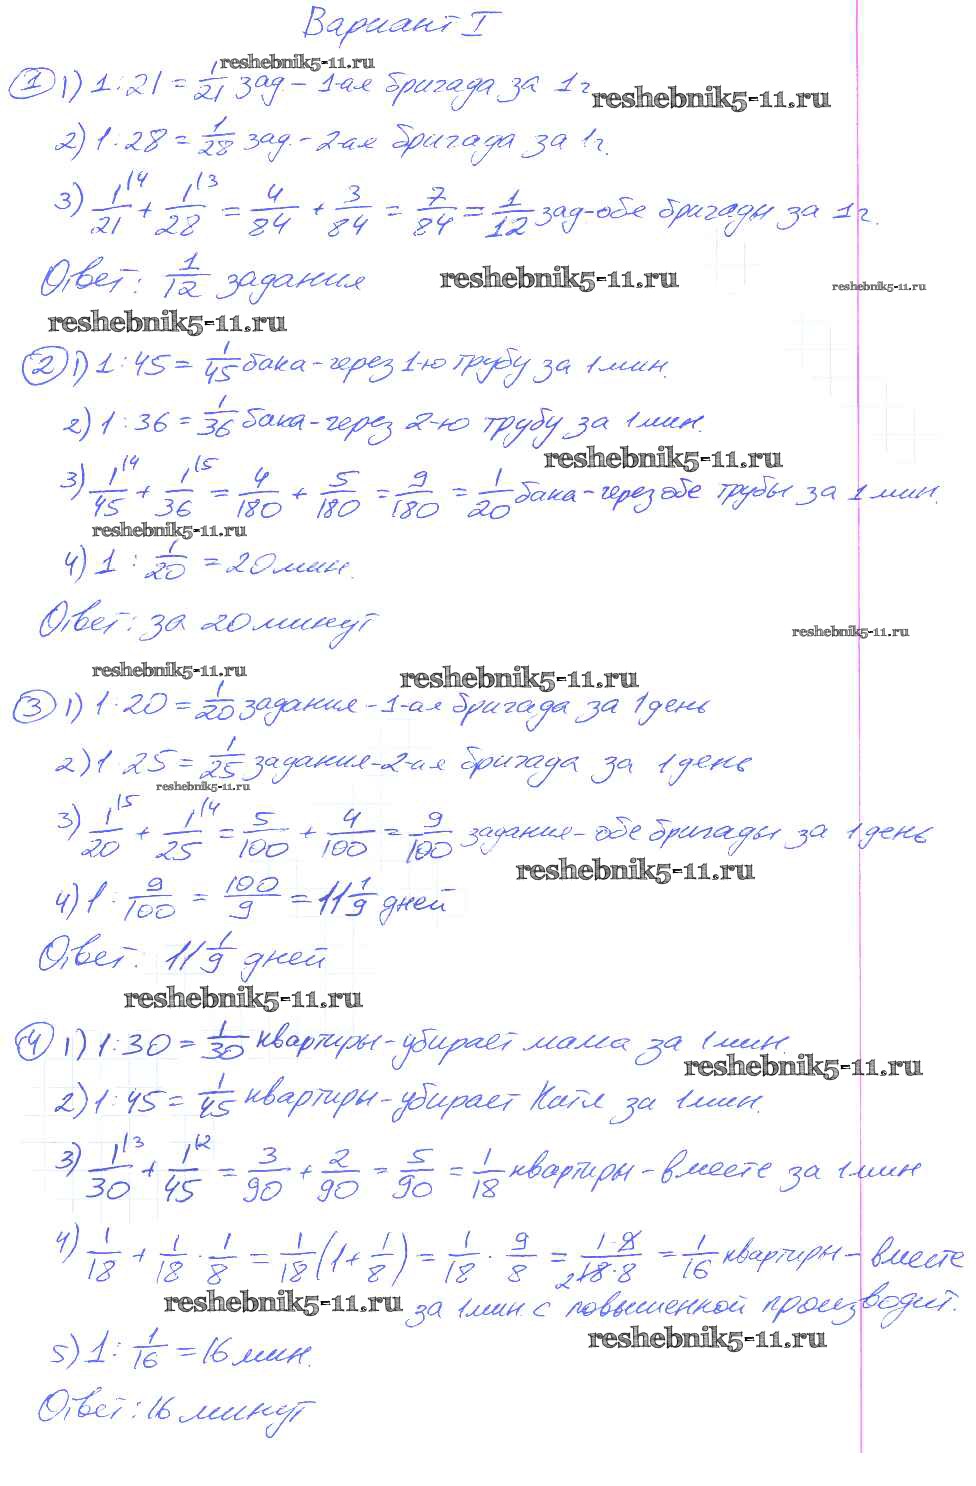 Вариант I
reshebnik5-11.ru
① 1) 1:21 = 1/21 зад – 1-ая бригада за 1г
reshebnik5-11.ru
2) 1:28 = 1/28 зад. – 2-ая бригада за 1г.
3) 1\4/21 + 1\3/28 = 4/84 + 3/84 = 7/84 = 1/12 зад - обе бригады за 1г.
Ответ: 1/12 задания
reshebnik5-11.ru
reshebnik5-11.ru
reshebnik5-11.ru
② 1) 1:45 = 1/45 бака - через 1-ю трубу за 1 мин.
2) 1:36 = 1/36 бака - через 2-ю трубу за 1 мин.
reshebnik5-11.ru
3) 1\4/45 + 1\5/36 = 4/180 + 5/180 = 9/180 = 1/20 бака - через обе трубы за 1 мин.
reshebnik5-11.ru
4) 1 : 1/20 = 20 мин.
Ответ: за 20 минут
reshebnik5-11.ru
reshebnik5-11.ru
reshebnik5-11.ru
③ 1) 1:20 = 1/20 задания - 1-ая бригада за 1 день
2) 1:25 = 1/25 задания - 2-ая бригада за 1 день
reshebnik5-11.ru
3) 1\5/20 + 1\4/25 = 5/100 + 4/100 = 9/100 задания - обе бригады за 1 день
reshebnik5-11.ru
4) 1 : 9/100 = 100/9 = 11 1/9 дней
Ответ: 11 1/9 дней
reshebnik5-11.ru
④ 1) 1:30 = 1/30 квартиры - убирает мама за 1 мин.
reshebnik5-11.ru
2) 1:45 = 1/45 квартиры - убирает Катя за 1 мин.
3) 1\3/30 + 1\2/45 = 3/90 + 2/90 = 5/90 = 1/18 квартиры - вместе за 1 мин
4) 1/18 + 1/18 · 1/8 = 1/18 (1 + 1/8) = 1/18 · 9/8 = 1·9/2 18·8 = 1/16 квартиры - вместе
reshebnik5-11.ru
за 1 мин. с повышенной производит.
reshebnik5-11.ru
5) 1 : 1/16 = 16 мин.
Ответ: 16 минут